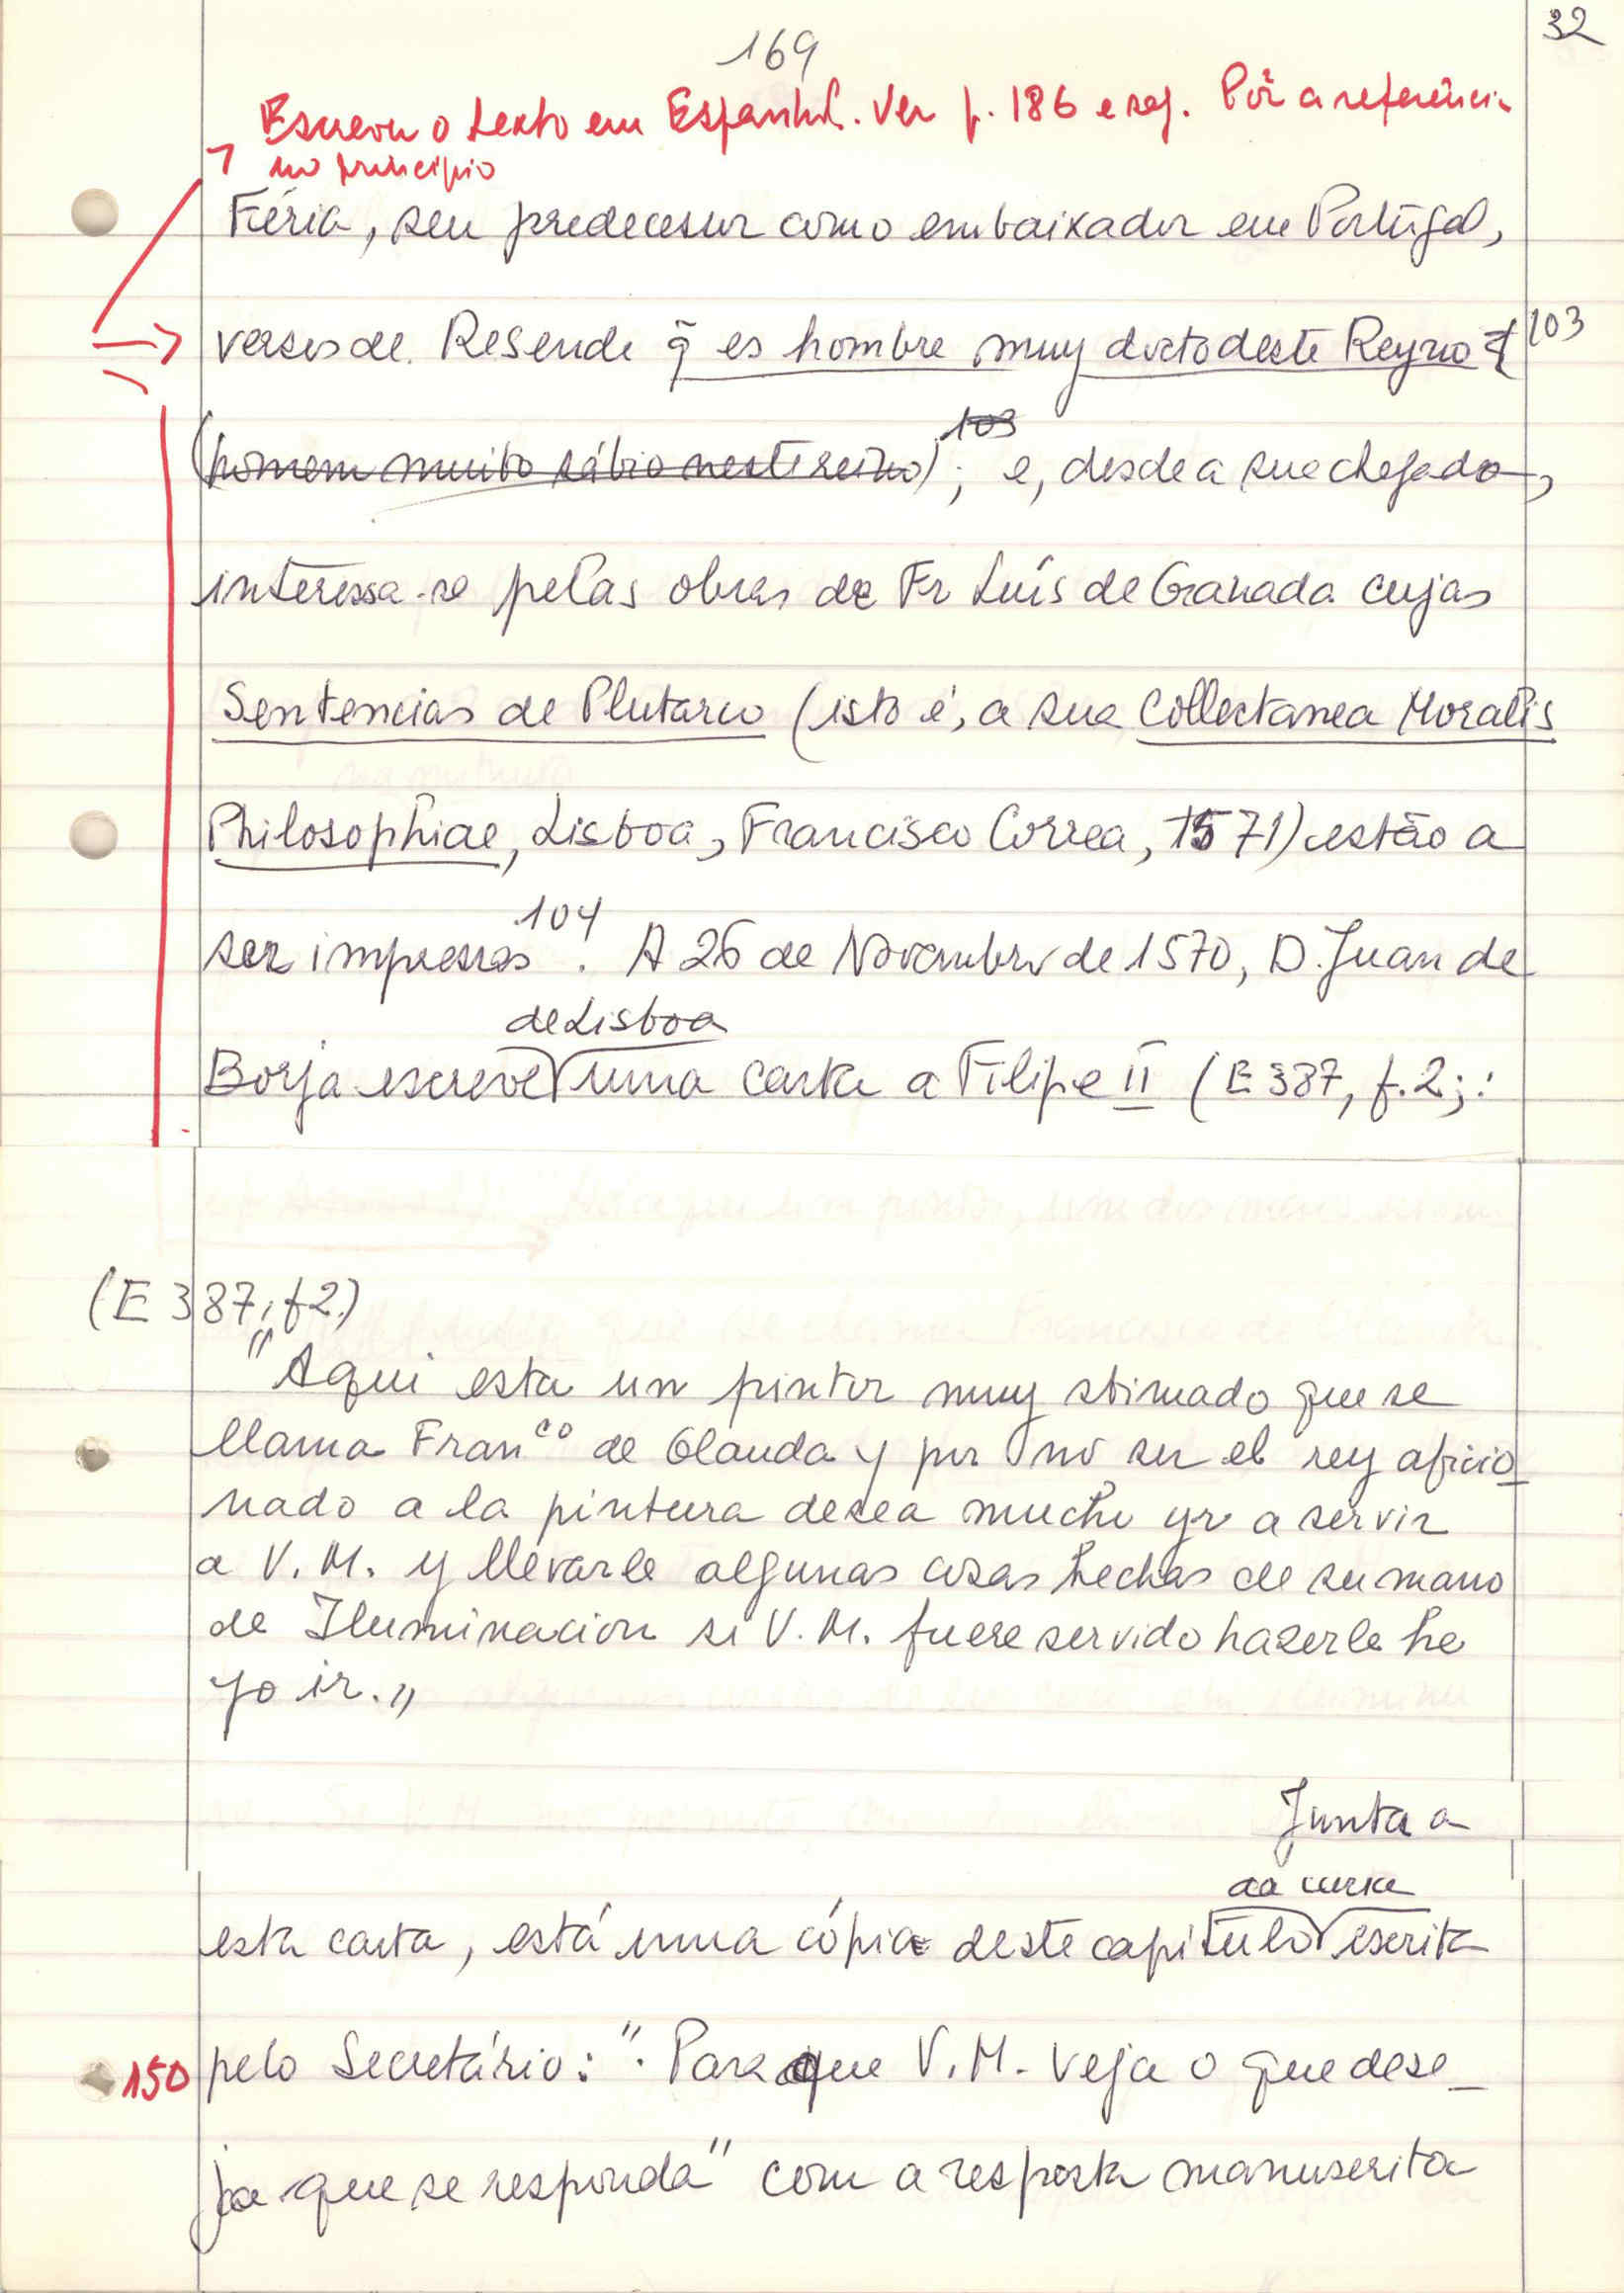 32
169
Escrever o texto em Espanhol. Ver p. 186 e seg. Pôr a referência
no princípio
Féria, seu predecesur como embaixador em Portugal,
versos de Resende q̃ es hombre muy docto deste Reyno 103
(homem muito sábio neste reino) 103; e, desde a sua chegada,
interessa-se pelas obras de Fr Luís de Granada cujas
Sentencias de Plutarco (isto é, a sua Collectanea Moralis
Philosophiae, Lisboa, Francisco Correa, 1571) estão a
ser impressas 104. A 26 de Novembro de 1570, D. Juan de
de Lisboa
Borja escreve uma carta a Filipe II (E 387, f. 2;:
(E 387, f2.)
"Aqui esta un pintor muy stimado que se
llama Fran^co de Olanda y por no ser el rey aficio
nado a la pintura desea mucho yr a servir
a V. M. y llevarle algunas cosas hechas de su mano
de Iluminacion si V. M. fuere servido hazerle he
yo ir."
Junta a
da carta
esta carta, está uma cópia deste capitulo escrita
150 pelo Secretário: ". Para que V. M. veja o que dese_
ja que se responda" com a resposta manuscrita